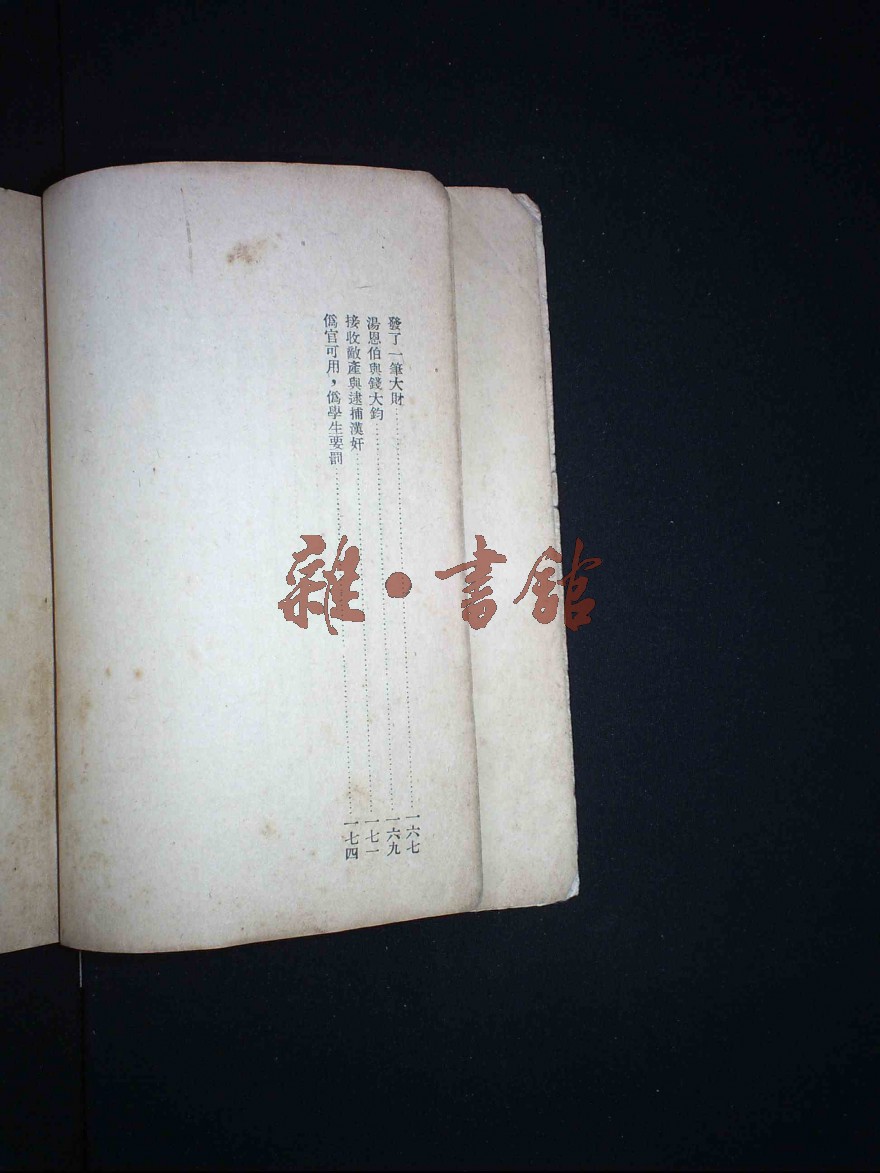 發了一筆大財……一六七
湯恩伯與錢大鈞……一六九
接收敵產與逮捕漢奸……一七一
僞官可用，僞學生要罰……一七四
雜·書館